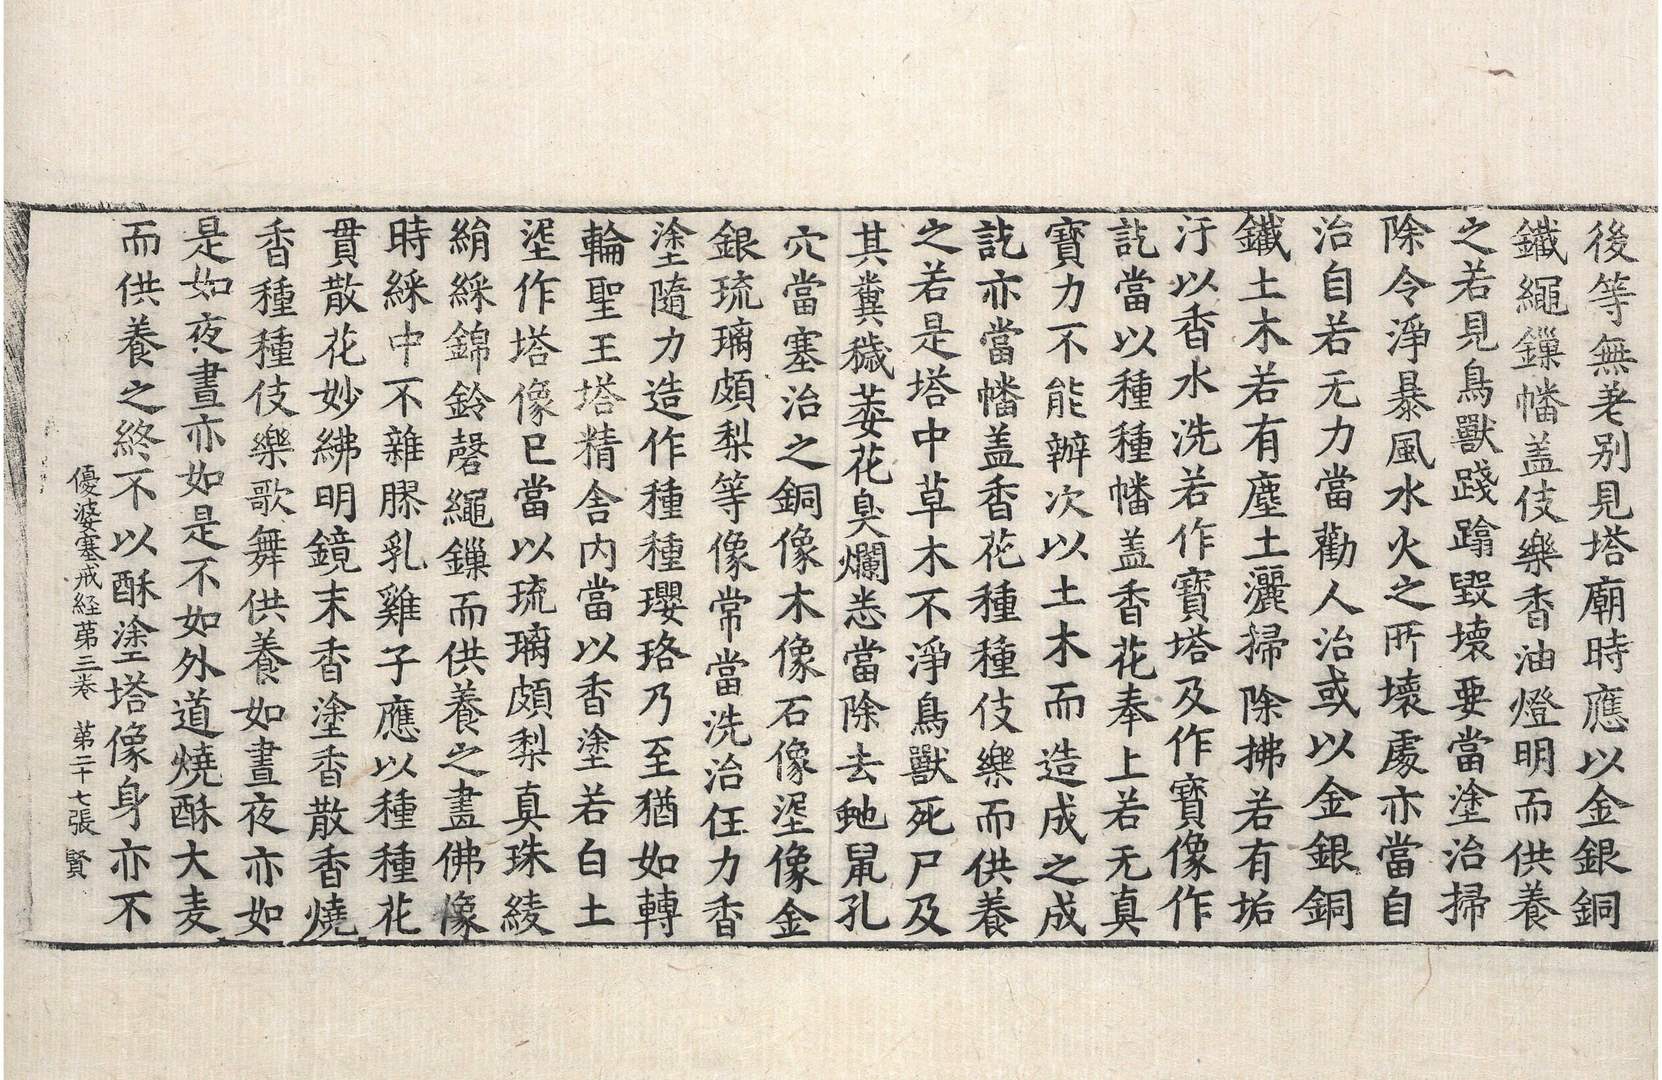 後等無差别見塔廟時應以金銀銅
鐵繩鏁幡盖伎樂香油燈明而供養
之若見鳥獸踐蹹毀壞要當塗治掃
除令淨暴風水火之所壞處亦當自
治自若无力當勸人治或以金銀銅
鐵土木若有塵土灑掃除拂若有垢
汙以香水洗若作寶塔及作寶像作
訖當以種種幡蓋香花奉上若无真
寶力不能辦次以土木而造成之成
訖亦當幡盖香花種種伎樂而供養
之若是塔中草木不淨鳥獸死尸及
其糞穢萎花臭爛悉當除去虵鼠孔
穴當塞治之銅像木像石像埿像金
銀琉璃頗梨等像常當洗治任力香
塗隨力造作種種瓔珞乃至猶如轉
輪聖王塔精舍内當以香塗若白土
埿作塔像已當以琉璃頗梨真珠綾
絹綵錦鈴磬繩鏁而供養之畫佛像
時綵中不雜膠乳雞子應以種種花
貫散花妙綍明鏡末香塗香散香燒
香種種伎樂歌舞供養如晝夜亦如
是如夜晝亦如是不如外道燒酥大麦
而供養之終不以酥塗塔像身亦不
優婆塞戒経苐三卷　苐二十七張　賢